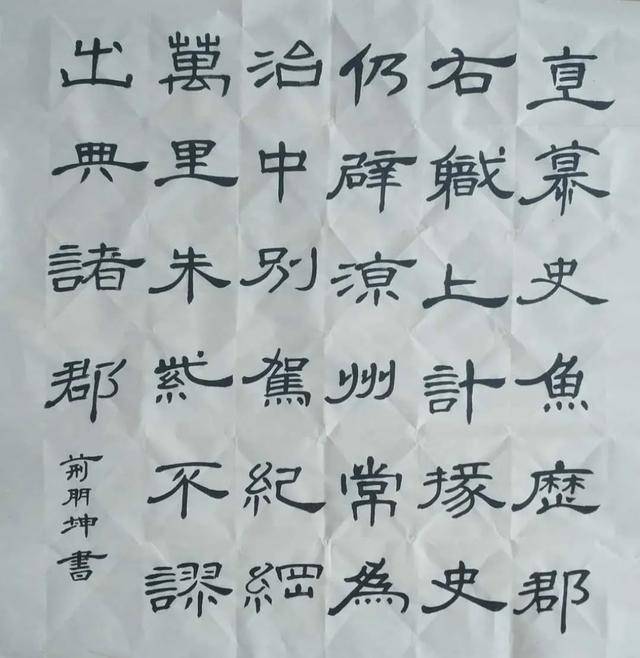 直慕史魚歷郡
右職上計掾史
仍辟涼州常為
治中別駕紀綱
萬里朱紫不謬
出典諸郡
荊朋坤書